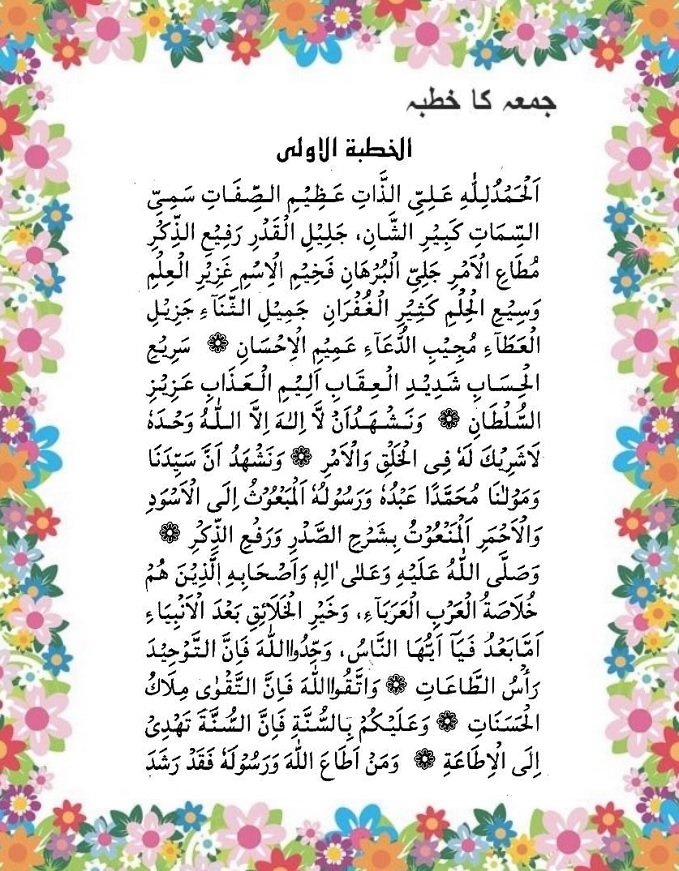 جمعہ کا خطبہ
الخطبة الاولى
اَلْحَمْدُلِلّٰهِ عَلِيِّ الذَّاتِ عَظِيْمِ الصِّفَاتِ سَمِيِّ
السِّمَاتِ كَبِيْرِ الشَّانِ، جَلِيْلِ الْقَدْرِ رَفِيْعِ الذِّكْرِ
مُطَاعِ الْاَمْرِ جَلِيِّ الْبُرْهَانِ فَخِيْمِ الْاِسْمِ غَزِيْرِ الْعِلْمِ
وَسِيْعِ الْحِلْمِ كَثِيْرِ الْغُفْرَانِ جَمِيْلِ الثَّنَآءِ جَزِيْلِ
الْعَطَآءِ مُجِيْبِ الدُّعَآءِ عَمِيْمِ الْاِحْسَانِ ۞ سَرِيْعِ
الْحِسَابِ شَدِيْدِ الْعِقَابِ اَلِيْمِ الْعَذَابِ عَزِيْزِ
السُّلْطَانِ ۞ وَنَشْهَدُاَنْ لَّا اِلٰهَ اِلَّا اللّٰهُ وَحْدَهٗ
لَاشَرِيْكَ لَهٗ فِى الْخَلْقِ وَالْاَمْرِ ۞ وَنَشْهَدُ اَنَّ سَيِّدَنَا
وَمَوْلٰنَا مُحَمَّدًا عَبْدُهٗ وَرَسُوْلُهُ الْمَبْعُوْثُ اِلَى الْاَسْوَدِ
وَالْاَحْمَرِ الْمَنْعُوْتُ بِشَرْحِ الصَّدْرِ وَرَفْعِ الذِّكْرِ ۞
وَصَلَّى اللّٰهُ عَلَيْهِ وَعَلٰى اٰلِهٖ وَاَصْحَابِهِ الَّذِيْنَ هُمْ
خُلَاصَةُ الْعَرَبِ الْعَرَبَآءِ، وَخَيْرِ الْخَلَائِقِ بَعْدَ الْاَنْبِيَاءِ
اَمَّابَعْدُ فَيَآ اَيُّهَا النَّاسُ، وَحِّدُوااللّٰهَ فَاِنَّ التَّوْحِيْدَ
رَأْسُ الطَّاعَاتِ ۞ وَاتَّقُوااللّٰهَ فَاِنَّ التَّقْوٰى مِلَاكُ
الْحَسَنَاتِ ۞ وَعَلَيْكُمْ بِالسُّنَّةِ فَاِنَّ السُّنَّةَ تَهْدِىْ
اِلَى الْاِطَاعَةِ ۞ وَمَنْ اَطَاعَ اللّٰهَ وَرَسُوْلَهٗ فَقَدْ رَشَدَ